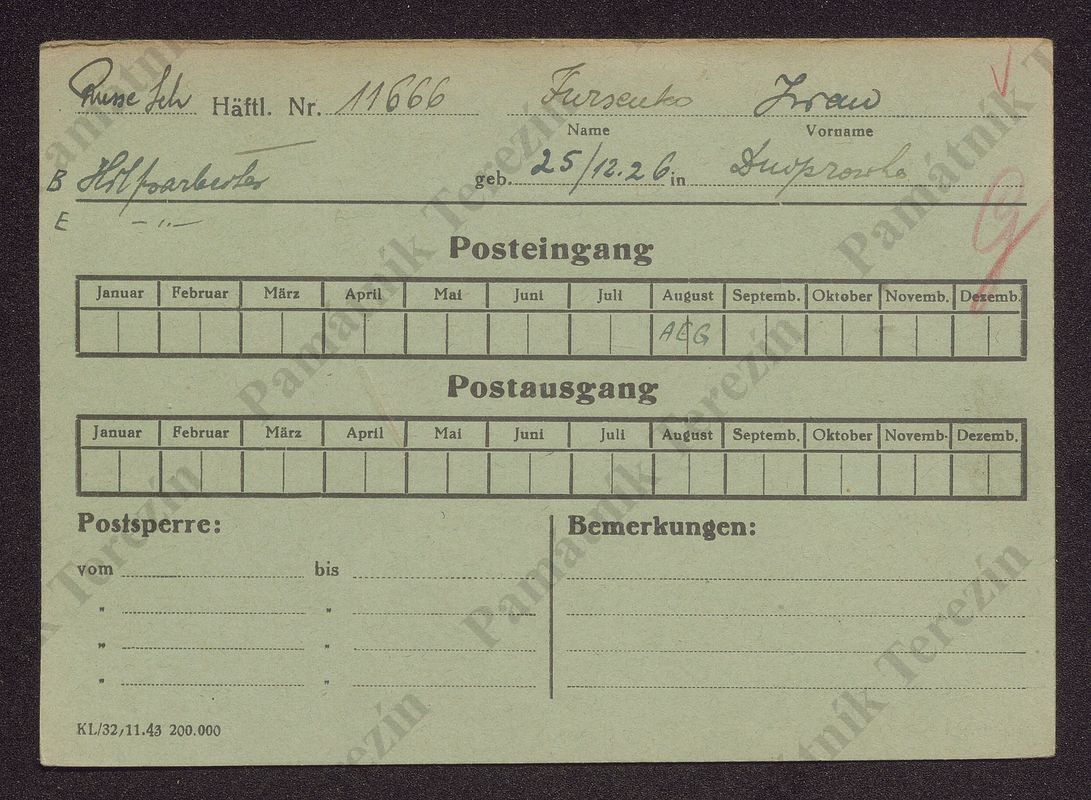 Russe Sch Häftl. Nr. 11666 Fursenko Iwan
Name Vorname
B Hilfsarbeiter geb. 25/12.26 in Dnoprowka
E – " –
Posteingang
Januar Februar März April Mai Juni Juli August Septemb. Oktober Novemb. Dezemb.
AEG
Postausgang
Januar Februar März April Mai Juni Juli August Septemb. Oktober Novemb. Dezemb.
Postsperre: Bemerkungen:
vom bis
" "
" "
" "
KL/32/11.43 200.000
Památník Terezín